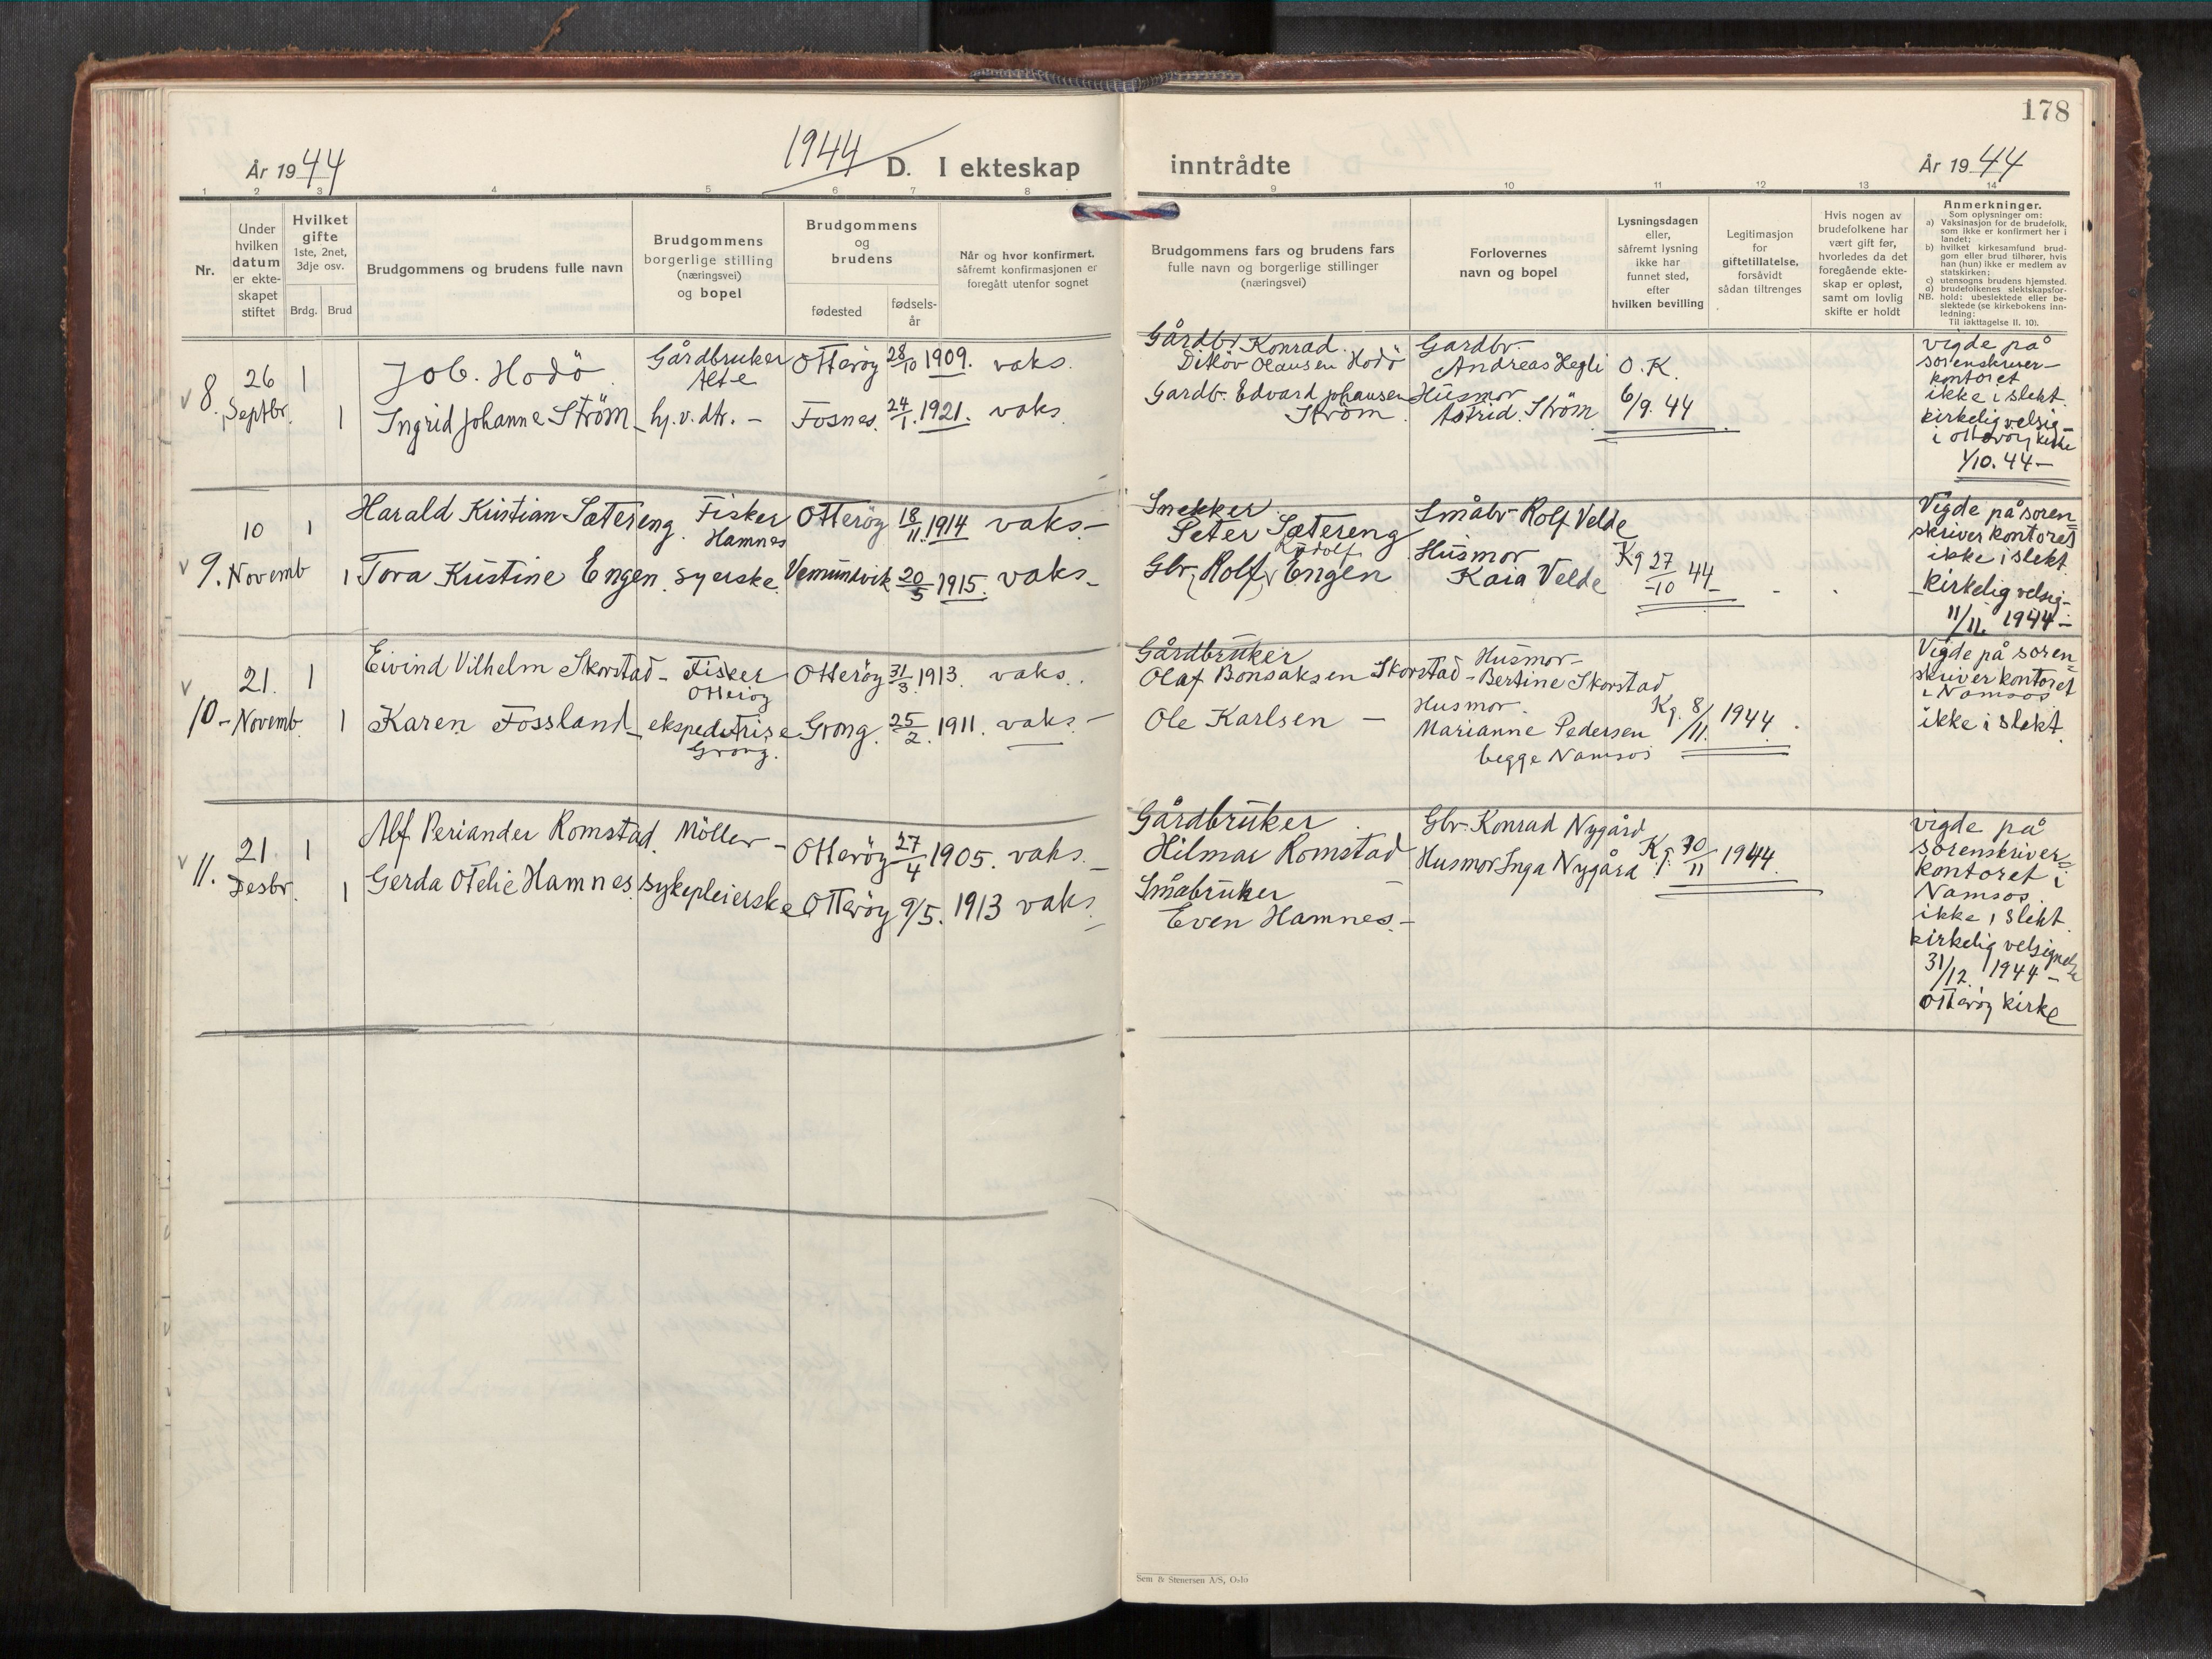 178
År 1944
1944
D. I ekteskap
inntrådte
År 1944
1 2 3 4 5 6 7 8 9 10 11 12 13 14
Nr.
Under
hvilken
datum
er ekte-
skapet
stiftet
Hvilket
gifte
1ste, 2net,
3dje osv.
Brdg. Brud
Brudgommens og brudens fulle navn
Brudgommens
borgerlige stilling
(næringsvei)
og bopel
Brudgommens
og
brudens
fødested
fødsels-
år
Når og hvor konfirmert,
såfremt konfirmasjonen er
foregått utenfor sognet
Brudgommens fars og brudens fars
fulle navn og borgerlige stillinger
(næringsvei)
Forlovernes
navn og bopel
Lysningsdagen
eller,
såfremt lysning
ikke har
funnet sted,
efter
hvilken bevilling
Legitimasjon
for
giftetillatelse,
forsåvidt
sådan tiltrenges
Hvis nogen av
brudefolkene har
vært gift før,
hvorledes da det
foregående ekte-
skap er opløst,
samt om lovlig
skifte er holdt
Anmerkninger.
Som oplysninger om:
a) Vaksinasjon for de brudefolk,
som ikke er konfirmert her i
landet;
b) hvilket kirkesamfund brud-
gom eller brud tilhører, hvis
han (hun) ikke er medlem av
statskirken;
c) utensogns brudens hjemsted.
d) brudefolkenes slektskapsfor-
NB. hold: ubeslektede eller be-
slektede (se kirkebokens inn-
ledning:
Til iakttagelse II. 10).
v 8. 26 Septbr. 1
Job. Hodö
Gårdbruker
Alte
Otterøy 28/10 1909. vaks.
1 Ingrid Johanne Ström hj. v. dtr. - Fosnes. 24/1. 1921. vaks
Gårdbr. Konrad
Ditløv Olausen Hodö
Gardbr. Edvard Johansen
Ström
Gardbr.
Andreas Hegli
Husmor
Astrid. Ström
O. K.
6/9. 44
vigde på
sorenskriver-
kontoret
ikke i slekt.
kirkelig velsig-
i Otterøy kirke
1/10. 44-
v 9. 10 Novemb 1
Harald Kristian Sætereng. Fisker
Hamnes
Otterøy 18/11. 1914 vaks.-
1 Tora Kristine Engen. syerske. Vemundvik 20/5 1915. vaks-
Snekker
Peter Sætereng
Rudolf
Gbr. (Rolf) Engen
Småbr. Rolf Velde
Husmor
Kaia Velde
Kg 27/10 44-
Vigde på soren=
skriver kontoret
ikke i slekt
kirkelig velsig-
11/11. 1944-
v 10- 21. Novemb. 1
Eivind Vilhelm Skorstad- Fisker
Otterøy
Otterøy 31/3. 1913. vaks.
1 Karen Fossland- ekspeditrise
Grong.
Grong. 25/2. 1911. vaks.-
Gårdbruker
Olaf Bonsaksen Skorstad-
Ole Karlsen -
Husmor-
Bertine Skorstad
Husmor
Marianne Pedersen
begge Namsos
Kg. 8/11. 1944.
Vigde på soren=
skriver kontoret
i Namsos
ikke i slekt.
v 11. 21 Desbr. 1
Alf Periander Romstad. Möller-
Otterøy 27/4 1905. vaks.
1 Gerda Otelie Hamnes. sykepleierske Otterøy 9/5. 1913 vaks.
Gårdbruker
Hilmar Romstad
Småbruker
Even Hamnes.-
Gbr. Konrad Nygård
Husmor Inga Nygård
Kg. 30/11 1944.
vigde på
sorenskriver=
kontoret i
Namsos.
ikke i slekt.
kirkelig velsignelse
31/12. 1944-
Otterøy kirke
Sem & Stenersen A/S, Oslo